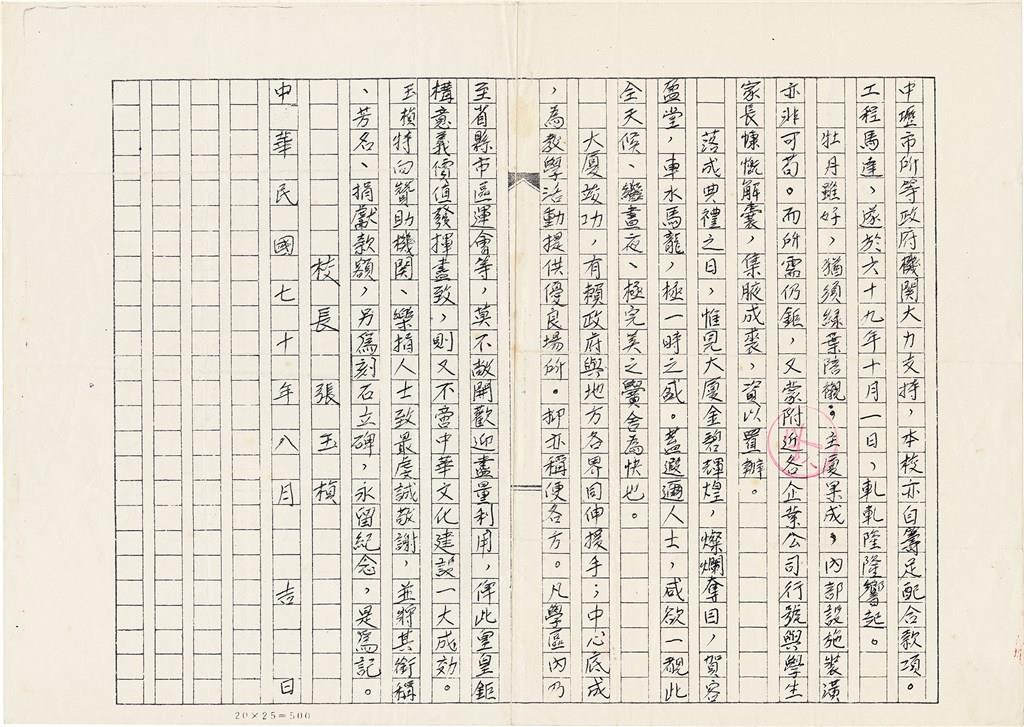 中壢市所等政府機關大力支持，本校亦自籌足配合款項。
工程馬達，遂於六十九年十月一日，軋軋隆隆響起。
牡月雖好，猶須綠葉陪襯；主廈果成，內部設施裝潢
亦非可苟。而所需仍鉅，又蒙附近各企業公司行號與學生
家長慷慨解囊，集腋成裘，資以置辦。
落成典禮之日，惟見大廈金碧輝煌，燦爛奪目，賀客
盈堂，車水馬龍，極一時之盛。蓋遐邇人士，咸欲一覩此
全天候、繼晝夜、極完美之黌舍為快也。
大廈竣功，有賴政府與地方各界同伸援手；中心底成
，為教學活動提供優良場所。抑亦稱便各方。凡學區內乃
至省縣市區運會等，莫不敞開歡迎盡量利用，俾此里皇鉅
構意義價值發揮盡致，則又不啻中華文化建設一大成効。
玉楨特向贊助機關、樂捐人士致最虔誠敬謝，並將其銜稱
、芳名、捐獻款額，另為刻石立碑，永留紀念，是為記。
校長張玉楨
中華民國七十年八月吉日
20×25=500